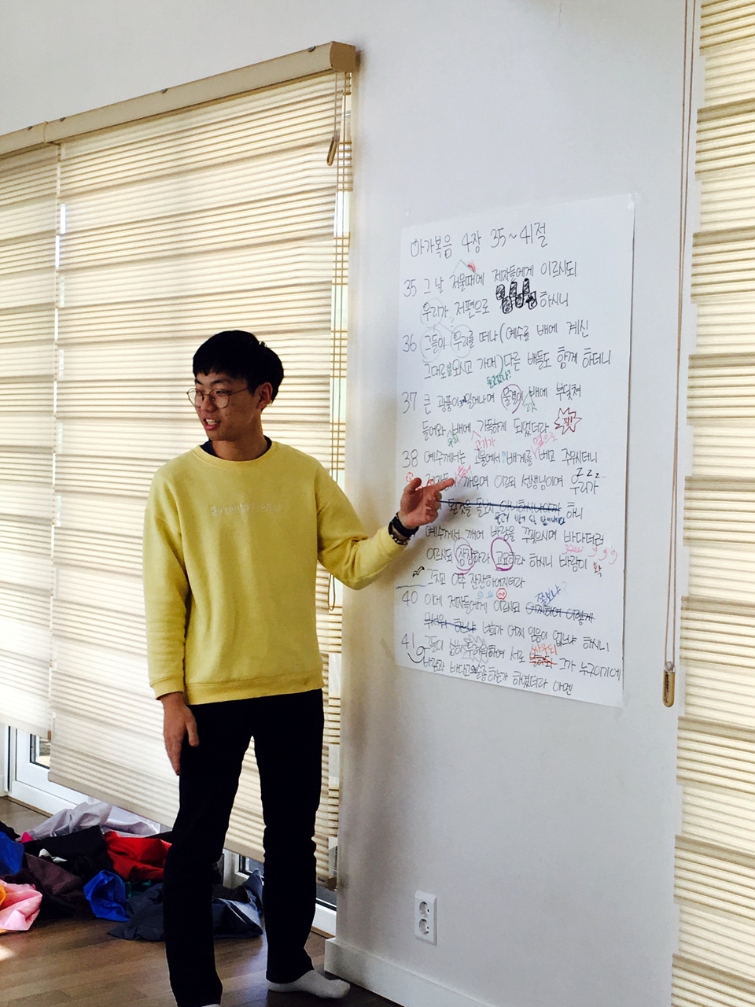 마가복음 4장 35~41절
35 그 날 저물때에 제자들에게 이르시되
우리가 저편으로 하시니
36 그들이 우리를 떠나 (예수를 배에 계신
그대로 모시고 가매) 다른 배들도 함께 하더니
37 큰 광풍이 일어나며 물결이 배에 부딪쳐
들어와 배에 가득하게 되었더라
38 예수께서는 고물에서 베개를 베고 주무시더니
깨우며 이르되 선생님이여 우리가 zzz
하니
예수께서 깨어 바람을 꾸짖으시며 바다더러
이르시되 잠잠하라 고요하라 하시니 바람이
그치고 아주 잔잔하여지더라
40 이에 제자들에게 이르시되 어찌하여 이렇게
무서워 하느냐 너희가 어찌 믿음이 없느냐 하시니
41 그들이 심히 두려워하여 서로 그가 누구이기에
바람과 바다도 순종하는가 하였더라 아멘